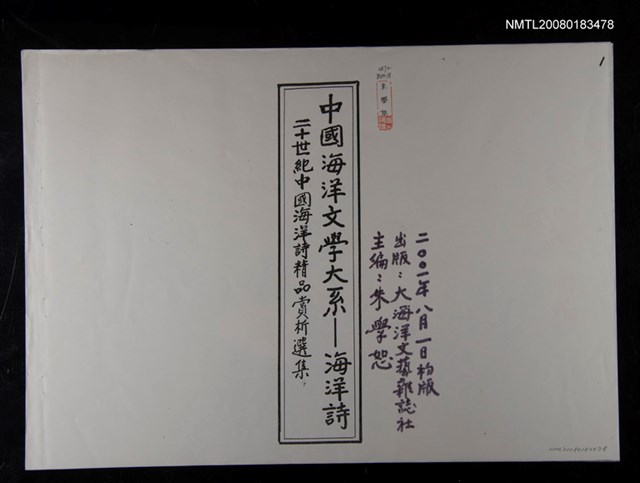 NMTL20080183478
1
二〇〇一年八月一日初版
出版：大海洋文藝雜誌社
主編：朱學恕
中國海洋文學大系—海洋詩
二十世紀中國海洋詩精品賞析選集，